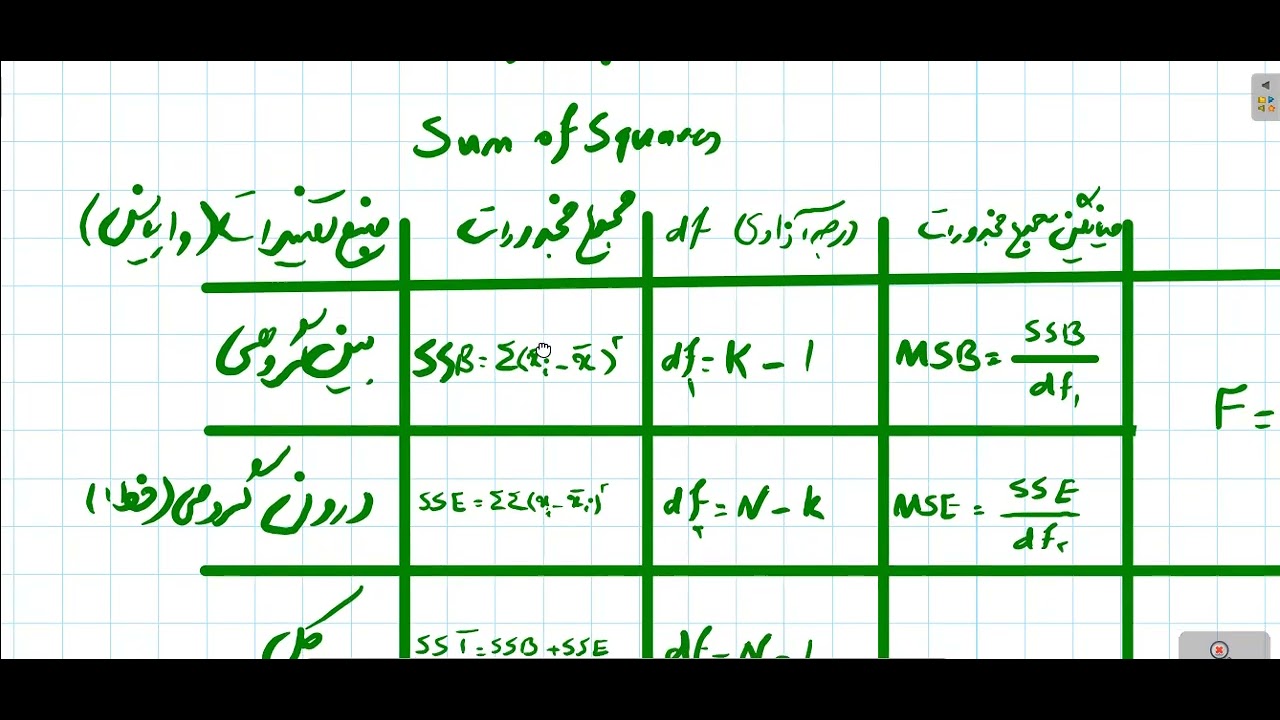 Sum of Squares
منبع تغییرات (واریانس) مجموع مجذورات df درجه آزادی میانگین مجموع مجذورات
بین گروهی SSB = Σ(x̄ᵢ - x̄)² df₁ = K - 1 MSB = SSB / df₁
F =
درون گروهی (خطا) SSE = ΣΣ(xᵢ - x̄ᵢ)² df₂ = N - K MSE = SSE / df₂
کل SST = SSB + SSE df = N - 1